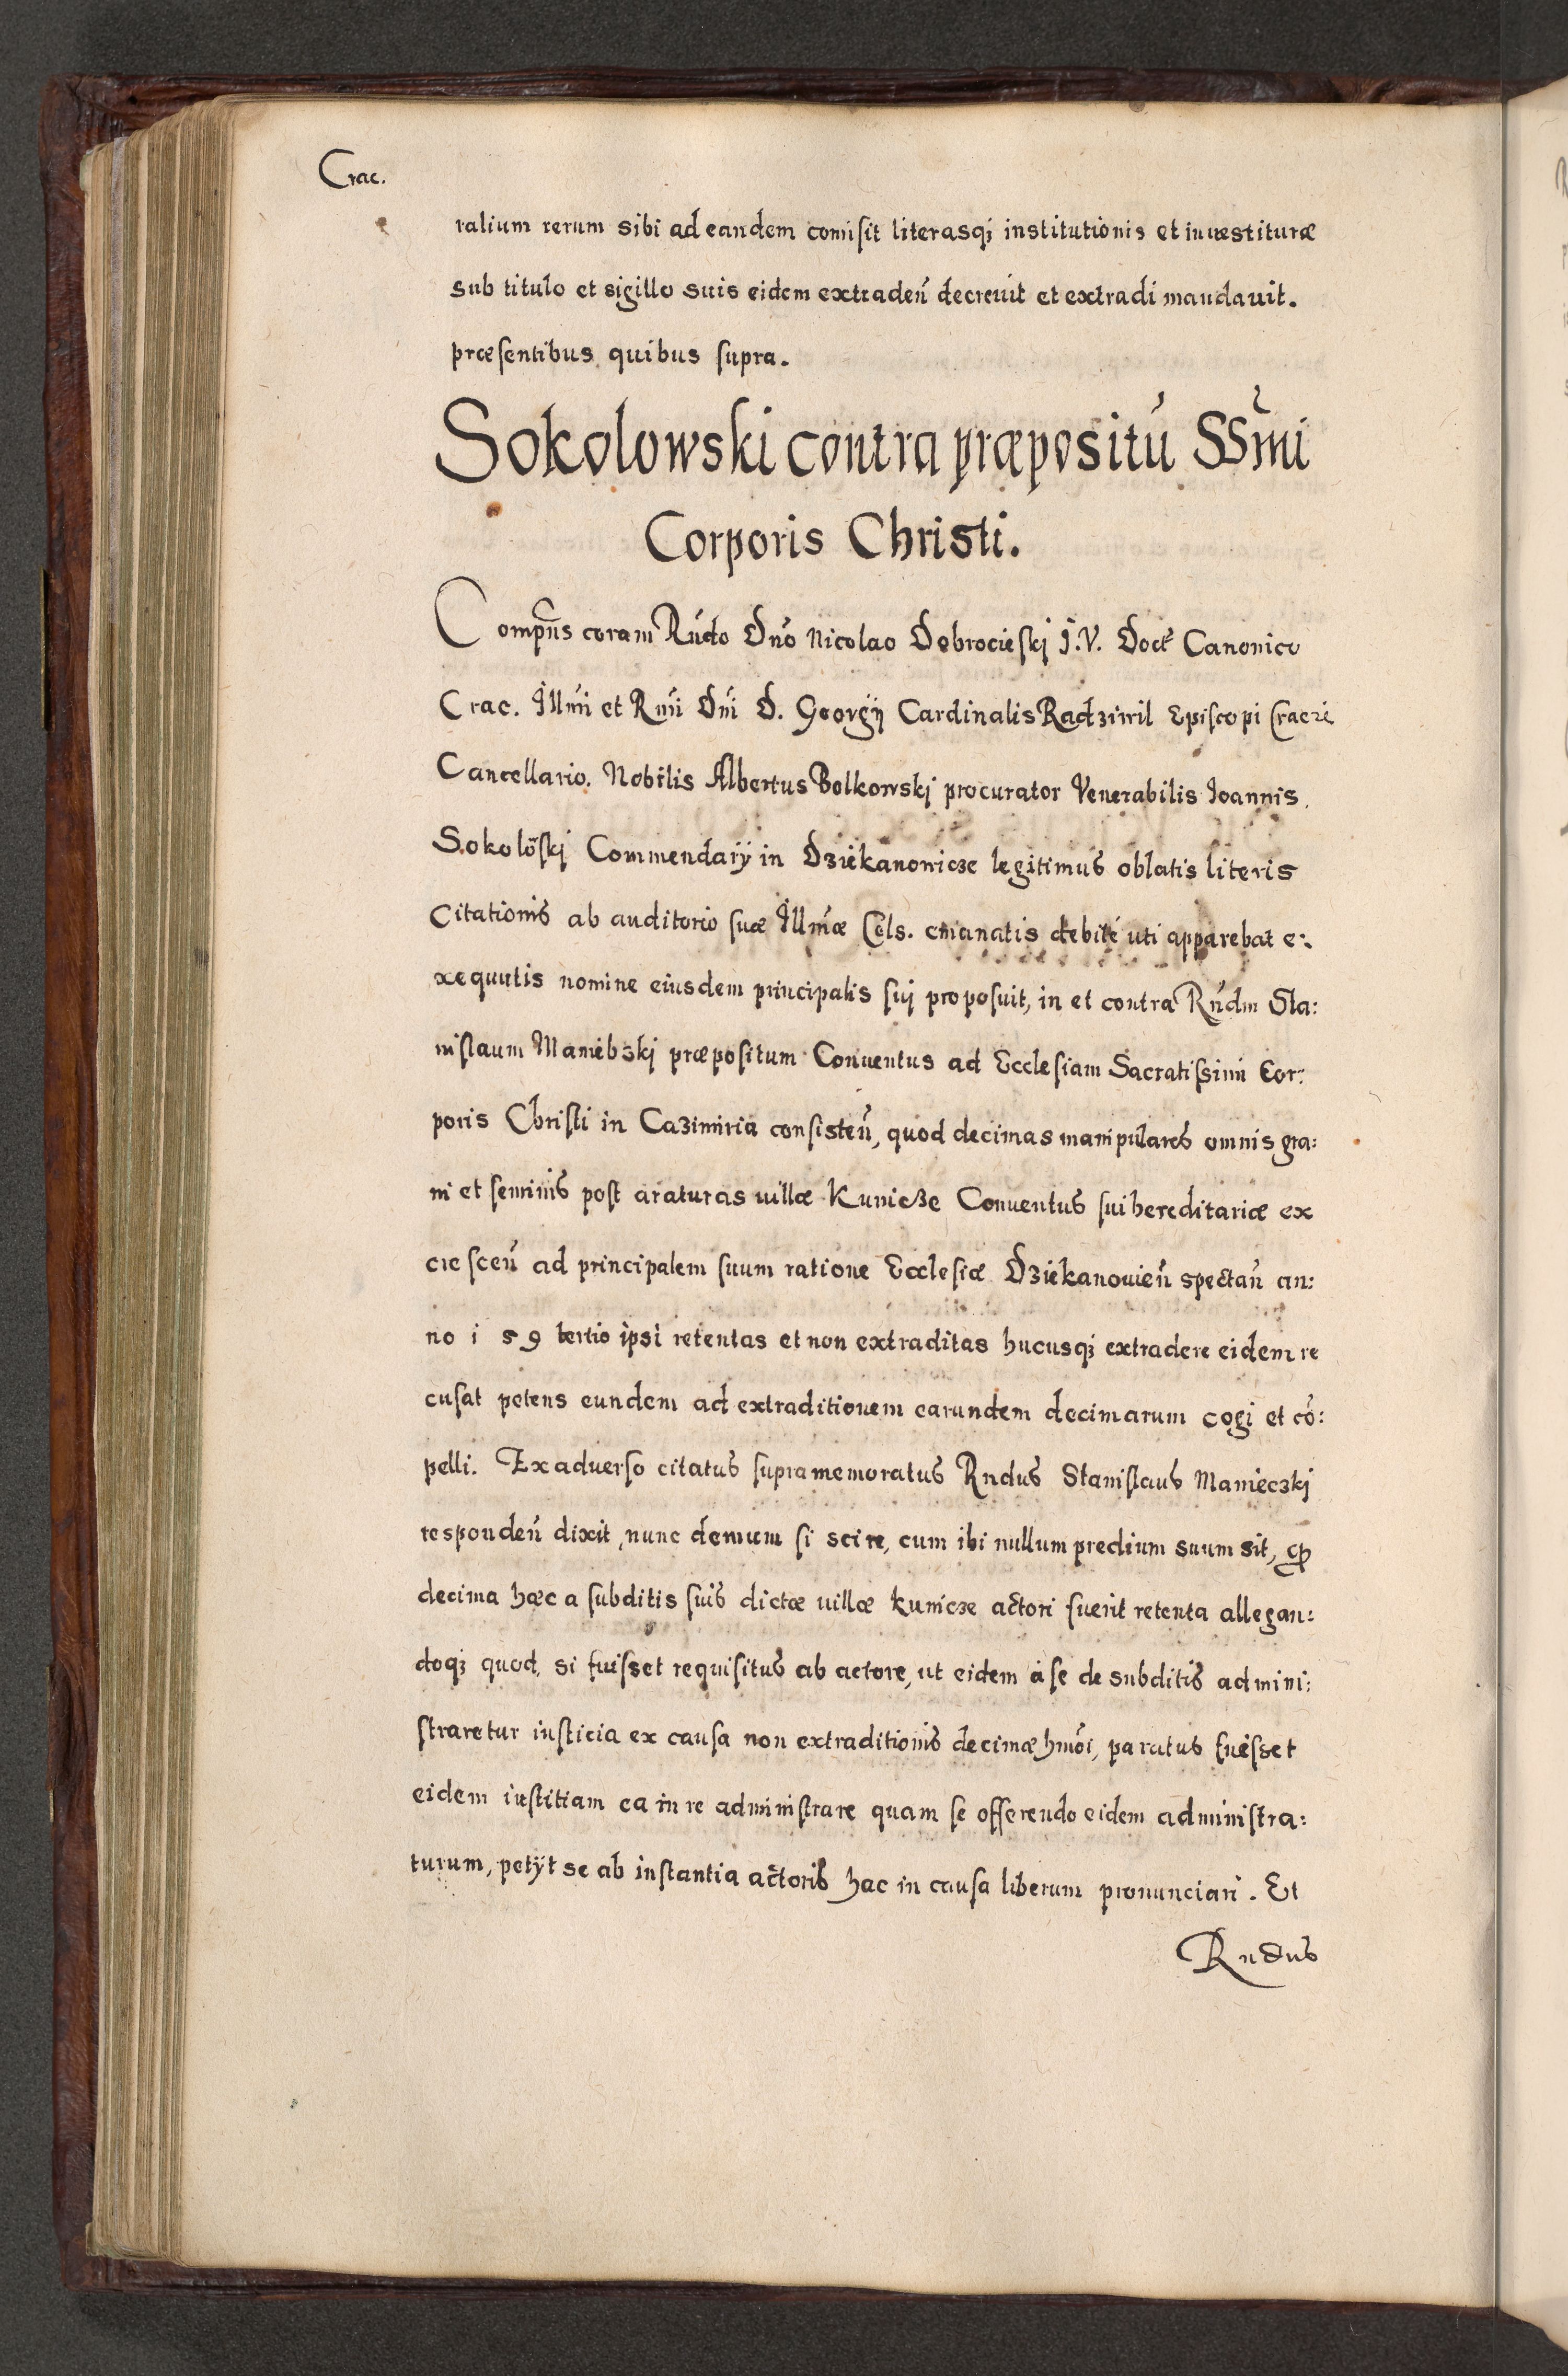 Crac.
ralium rerum sibi ad eandem comisit literasqʒ institutionis et inuestituræ
sub titulo et sigillo suis eidem extradeñ decreuit et extradi mandauit.
præsentibus quibus supra.
Sokolowski contra præpositū SSm̃i
Corporis Christi.
Comp̃ns coram Rñdo Dño Nicolao Dobrocieskj J.V. Doct̃ Canonico
Crac. Illm̃i et Rm̃i Dñi D. Georgÿ Cardinalis Radziwil Episcopi
Cancellario. Nobilis Albertus Bolkowskj procurator Venerabilis Joannis
Sokolõskj Commendarÿ in Dziekanowicze legitimus oblatis literis
Citationis ab auditorio suæ Illm̃æ Cels. emanatis debitè uti apparebat e:
xequutis nomine eiusdem principalis suj proposuit, in et contra Rñdm Sta:
nislaum Maniebzkj præpositum Conuentus ad Ecclesiam Sacratissimi Cor:
poris Christi in Cazimiria consisteñ, quod decimas manipulares omnis gra:
ni et seminis post araturas uillæ Kunicze Conuentus sui hereditariæ ex
cresceñ ad principalem suum ratione Ecclesiæ Dziekanouieñ spectañ an:
no i 59 tertio ipsi retentas et non extraditas hucusqʒ extradere eidem re
cusat petens eundem ad extraditionem earundem decimarum cogi et cõ:
pelli. Ex aduerso citatus supramemoratus Rndus Stanislaus Manieczkj
respondeñ dixit, nunc demum si scire, cum ibi nullum predium suum sit, ꝙ
decima hæc a subditis suis dictæ uillæ kunicze actori fuerit retenta allegan:
doqʒ quod, si fuisset requisitus ab actore, ut eidem à se de subditis admini:
straretur iusticia ex causa non extraditionis decimæ hmõi, paratus fuisset
eidem iustitiam ea in re administrare quam se offerendo eidem administra:
turum, petÿt se ab instantia actoris hac in causa liberum pronunciari. Et
Rndus